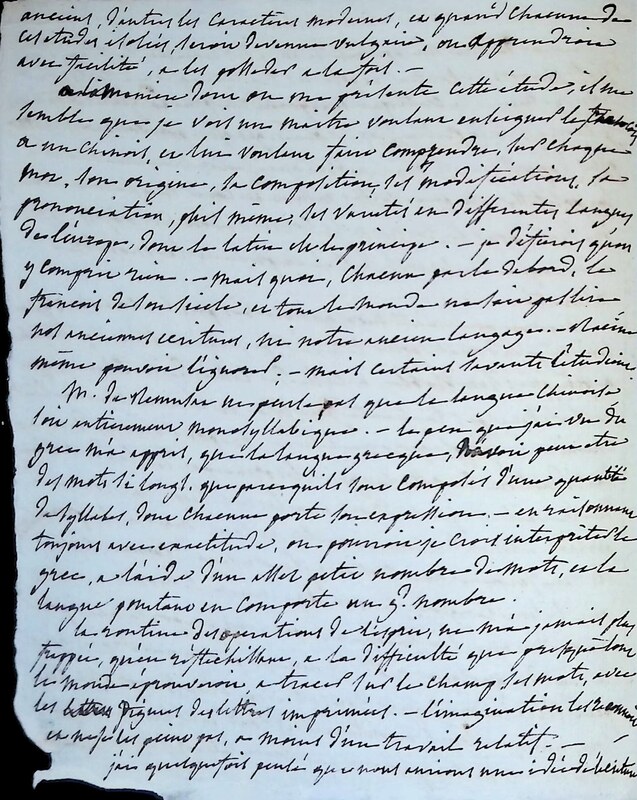 anciens, d'autres les caracteres modernes, et quand chacune de
ces etudes isolées, seroit devenue vulgaire, on apprendroit
avec facilité, a les posseder a la fois. —
a la maniere dont on me présente cette étude, il me
semble que je vois un maitre voulant enseigner le francois
a un chinois, et lui voulant faire comprendre, sur chaque
mot, son origine, sa composition, ses modifications, sa
prononciation, plus même, les varietés en differentes langues
de l'europe, dont le latin est le principe. — je défierois qu'on
y comprit rien. — mais quoi, chacun parle d'abord, le
francois de son siecle, et tout le monde ne sait pas lire
nos anciennes ecritures, ni notre ancien langage. —
même pouvoir l'ignorer. — mais certains savants l'étudient
M. de Remusat ne pense pas que la langue chinoise
soit entierement monosyllabique. — le peu que j'ai vu du
grec m'a appris, que la langue grecque, n'avoit peut etre
des mots si longs, que parcequ'ils sont composés d'une quantité
de syllabes, dont chacune porte son expression. — en raisonnant
toujours avec exactitude, on pourroit je crois interpréter le
grec, a l'aide d'un assez petit nombre de mots, et la
langue pourtant en comporte un gd. nombre.
la routine des operations de l'esprit, ne m'a jamais plus
frappée, qu'en réflechissant, a la difficulté que presque tout
le monde éprouveroit a tracer sur le champ ses mots, avec
les figures des lettres imprimées. — l'imagination les
et ne se les peint pas, a moins d'un travail relatif. —
j'ai quelquefois pensé que nous aurions une idée de l'ecriture